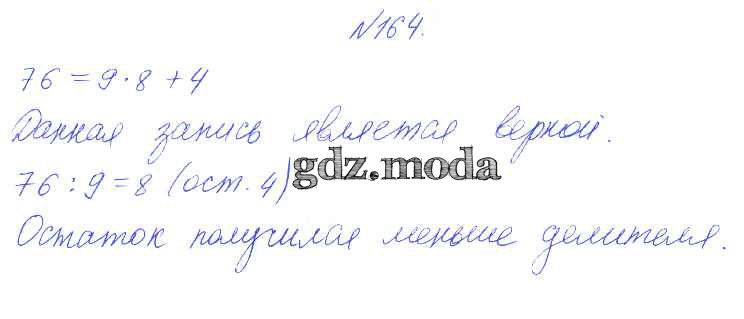 №164.
76 = 9 · 8 + 4
Данная запись является верной.
76 : 9 = 8 (ост. 4)
gdz.moda
Остаток получился меньше делителя.